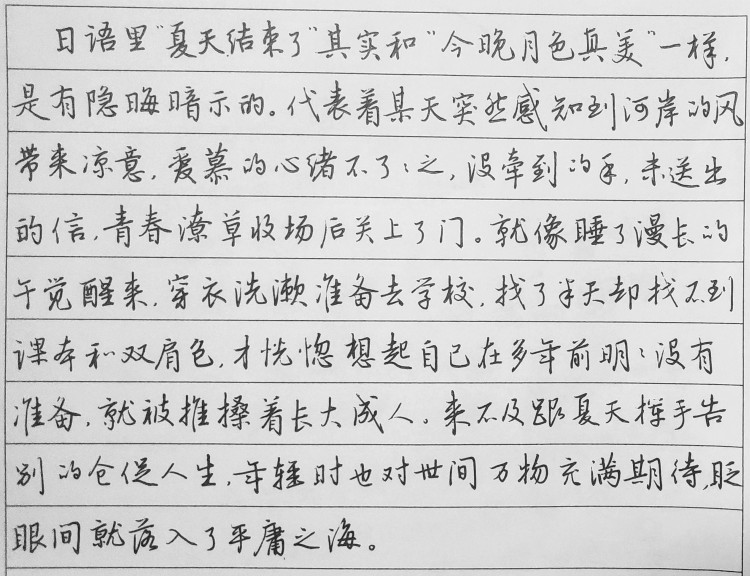 日语里"夏天结束了"其实和"今晚月色真美"一样,
是有隐晦暗示的。代表着某天突然感知到河岸的风
带来凉意,爱慕的心绪不了:之,没牵到的手,未送出
的信,青春潦草收场后关上了门。就像睡了漫长的
午觉醒来,穿衣洗漱准备去学校,找了半天却找不到
课本和双肩包,才恍惚想起自己在多年前明:没有
准备,就被推搡着长大成人。来不及跟夏天挥手告
别的仓促人生,年轻时也对世间万物充满期待,眨
眼间就落入了平庸之海。